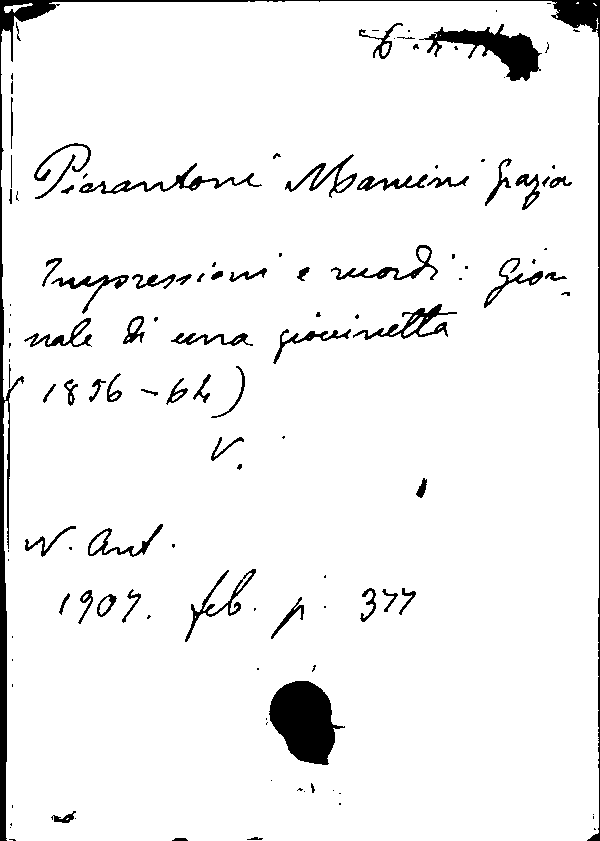 Pierantoni Mancini Grazia
Impressioni e ricordi: Gior-
nale di una giovinetta
(1856-64)
V.
N. Ant.
1907. feb. p. 377